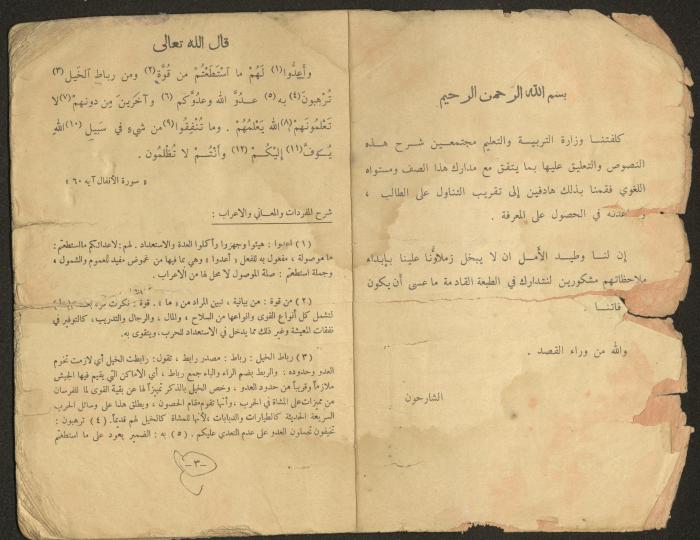 بسم الله الرحمن الرحيم
كلفتنا وزارة التربية والتعليم مجتمعين شرح هذه
النصوص والتعليق عليها بما يتفق مع مدارك هذا الصف ومستواه
اللغوي فقمنا بذلك هادفين إلى تقريب التناول على الطالب ،
في الحصول على المعرفة .
إن لنا وطيد الأمل ان لا يبخل زملاؤنا علينا بإبداء
ملاحظاتهم مشكورين لنتدارك في الطبعة القادمة ما عسى أن يكون
فاتنا .
والله من وراء القصد .
الشارحون
قال الله تعالى
وأعِدُّوا(١) لَهُمْ ما اسْتَطَعْتُمْ من قُوَّةٍ(٢) ومن رباطِ الخَيل(٣)
تُرْهِبونَ(٤) به(٥) عدوَّ الله وعدُوَّكم(٦) وآخَرينَ مِن دونهمْ(٧)لا
تَعْلَمُونَهُمْ(٨)الله يَعْلَمُهُمْ . وما تُنْفِقُوا(٩)من شيءٍ في سَبيلِ(١٠)اللهِ
يُوَفَّ(١١) إليْكُمْ(١٢) وأنْتُمْ لا تُظْلَمُون .
« سورة الأنفال آية ٦٠ »
شرح المفردات والمعاني والاعراب :
(١) اعدوا : هيئوا وجهزوا وأكملوا العدة والاستعداد . لهم : لاعدائكم مااستطعتم :
ما موصولة ، مفعول به للفعل « أعدوا » وهي بما فيها من غموض مفيد للعموم والشمول ،
وجملة استطعتم : صلة الموصول لا محل لها من الاعراب .
(٢) من قوة : من بيانية ، تبين المراد من « ما » . قوة : نكرت
لتشمل كل أنواع القوى وانواعها من السلاح ، والمال ، والرجال والتدريب ، كالتوفير في
نفقات المعيشة وغير ذلك مما يدخل في الاستعداد للحرب ، ويتقوى به .
(٣) رباط الخيل : رباط : مصدر رابط ، تقول : رابطت الخيل أي لازمت تخوم
العدو وحدوده : والربط بضم الراء والباء جمع رباط ، أي الأماكن التي يقيم فيها الجيش
ملازماً وقريباً من حدود العدو ، وخص الخيل بالذكر تمييزاً لها عن بقية القوى لما للفرسان
من مميزات على المشاة في الحرب ، وأنها تقوم مقام الحصون ، ويطلق هذا على وسائل الحرب
السريعة الحديثة كالطيارات والدبابات ، لأنها للمشاة كالخيل لهم قديماً . (٤) ترهبون :
تخيفون تحملون العدو على عدم التعدي عليكم . (٥) به : الضمير يعود على ما استطعتم
-٣-